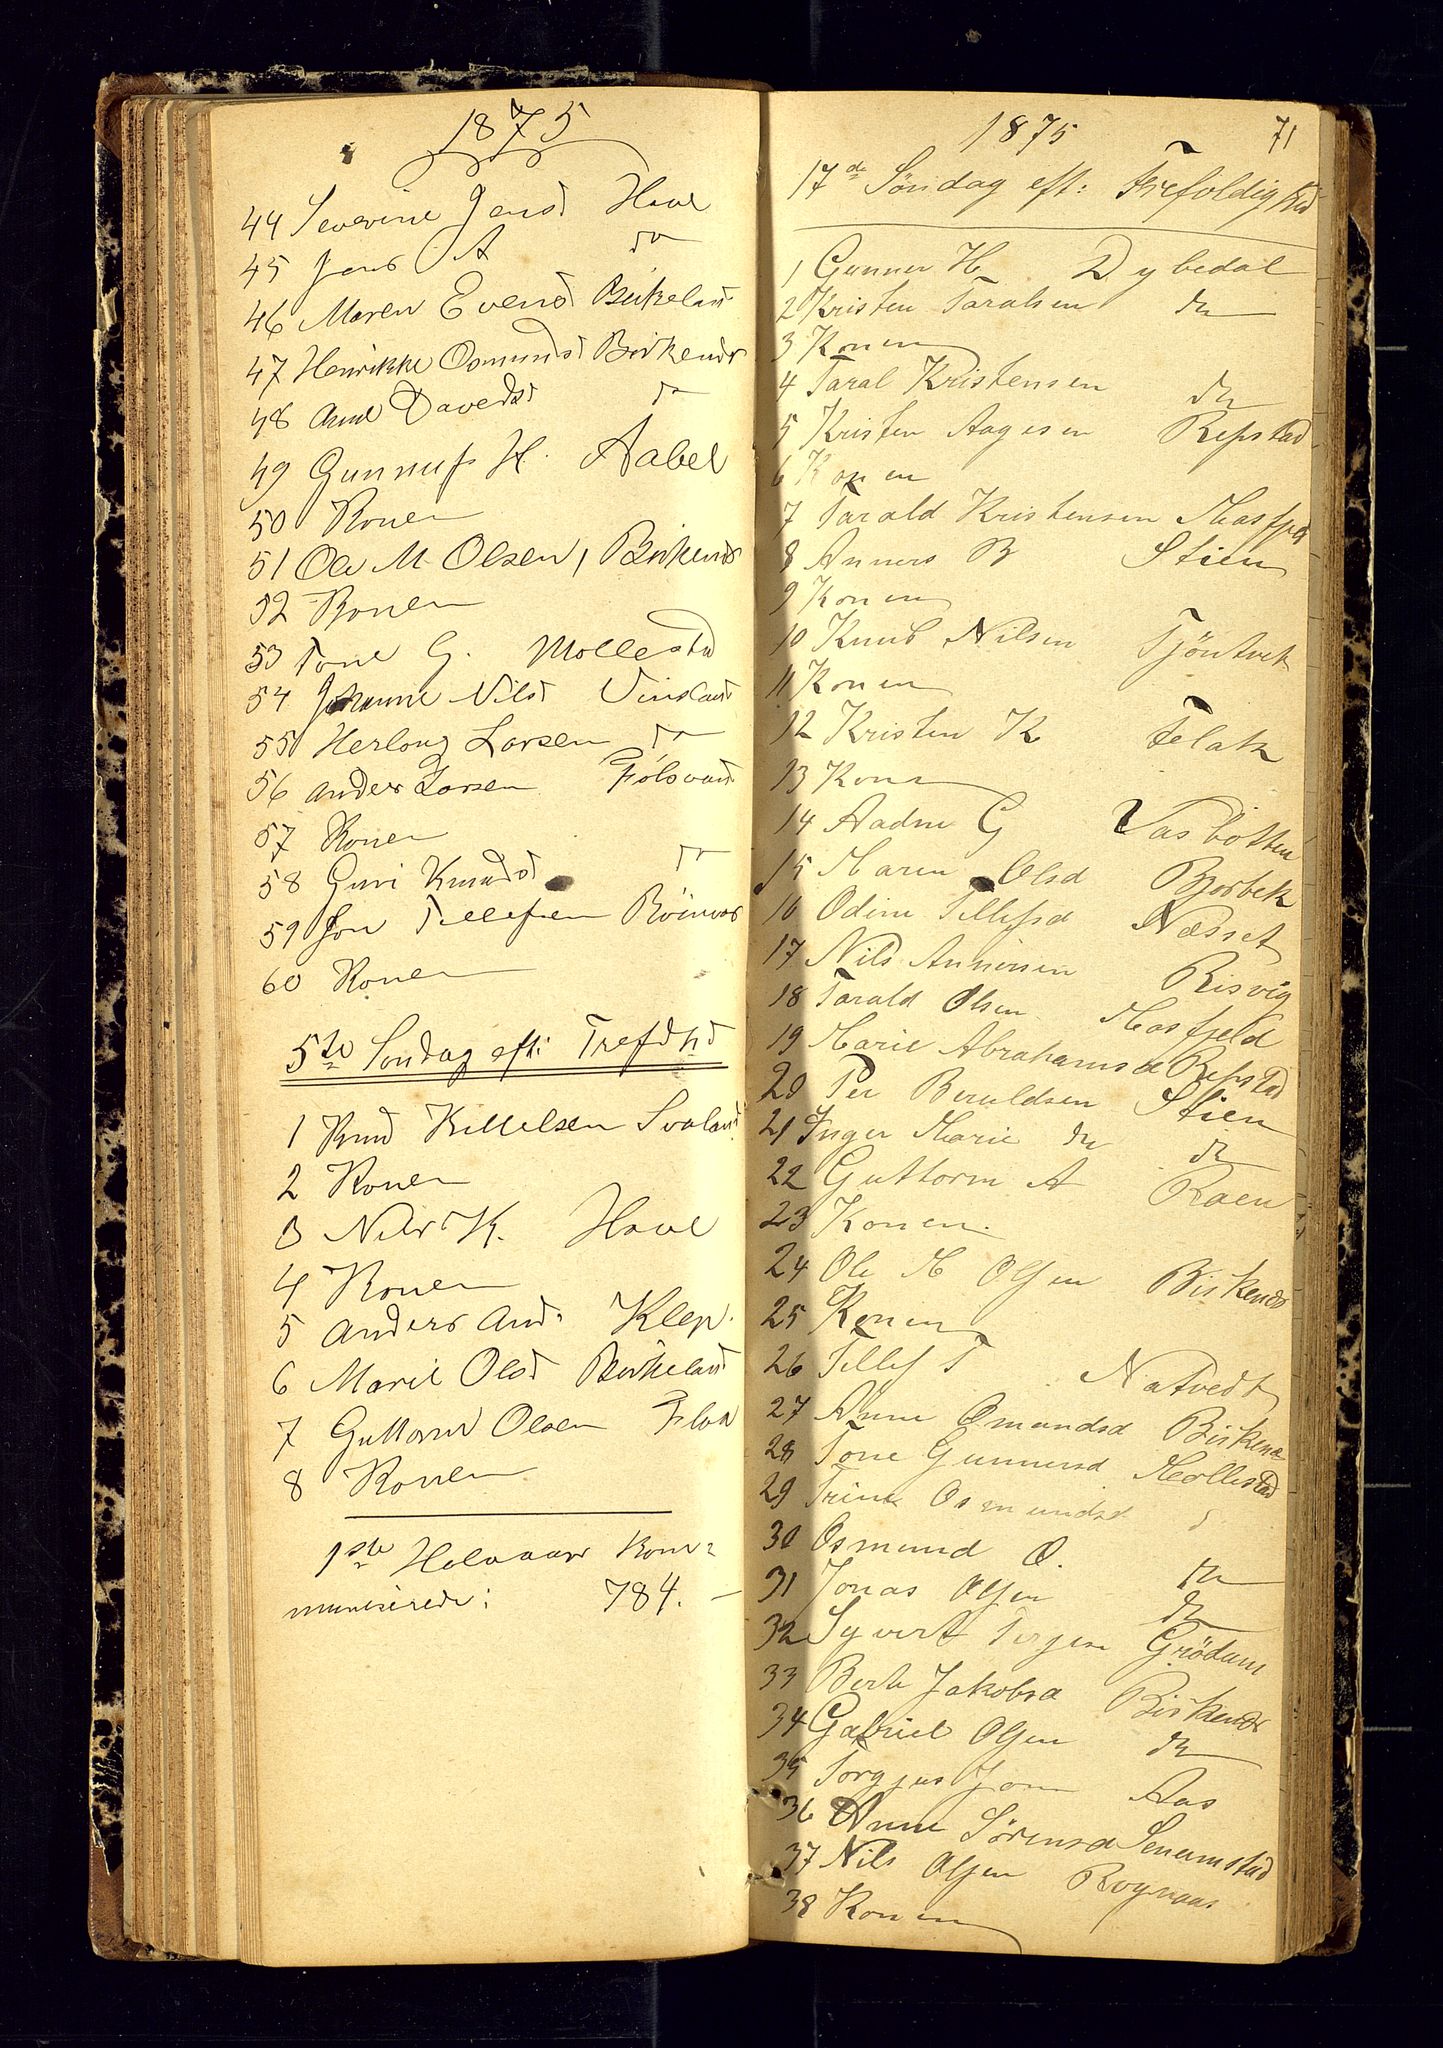 1875
44 Severine Jensd Hovl
45 Jens A do
46 Maren Evensd Birkeland
47 Henrikke Osmundsd Birkenes
48 Anne Davedsd do
49 Gunnuf H. Aabel
50 Konen
51 Ole M. Olsen, Birkenes
52 Konen
53 Tone G. Mollestad
54 Johanne Nilsd Vinsland
55 Herlong Larsen do
56 Anders Larsen Fölsvand
57 Konen
58 Guri Knudsd do
59 Jon Tellefsen
60 Konen
5te Söndag eft: Trefdhd
1 Knud Kittelsen Svaland
2 Konen
3 Nils K. Hovl
4 Konen
5 Anders And: Klep.
6 Marie Olsd Birkeland
7 Guttorm Olsen Flaa
8 Konen
1ste Halvaar Kom=
muniserede: 784. —
1875 71
17de Söndag eft: Trefoldighed
1 Gunner H. Dybedal
2 Kristen Taralsen do
3 Konen
4 Taral Kristensen do
5 Kristen Aagesen Repstad
6 Konen
7 Tarald Kristensen Masfjeld
8 Anners B Stien
9 Konen
10 Knud Nilsen Tjöntveit
11 Konen
12 Kristen K
13 Konen
14 Aadne G Vasbotten
15 Maren Olsd Bjorbek
16 Odine Tellefsd Næsset
17 Nils Annersen Risvig
18 Tarald Olsen Masfjeld
19 Marie Abrahamsd Repstad
20 Per Beruldsen Stien
21 Inger Marie do do
22 Guttorm A Raen
23 Konen.
24 Ole M Olsen Birkenes
25 Konen
26 Tellef T Natvedt
27 Anne Osmundsd Birkenes
28 Tone Gunnersd Mollestad
29 Trine Osmundsd d
30 Osmund O.
31 Jonas Olsen do
do
32 Syvert Terjesen Grödum
33 Berte Jakobsd Birkenes
34 Gabriel Olsen do
35 Torgjus Aas
36 Anne Sörensd Senumstad
37 Nils Olsen Rognaas
38 Konen